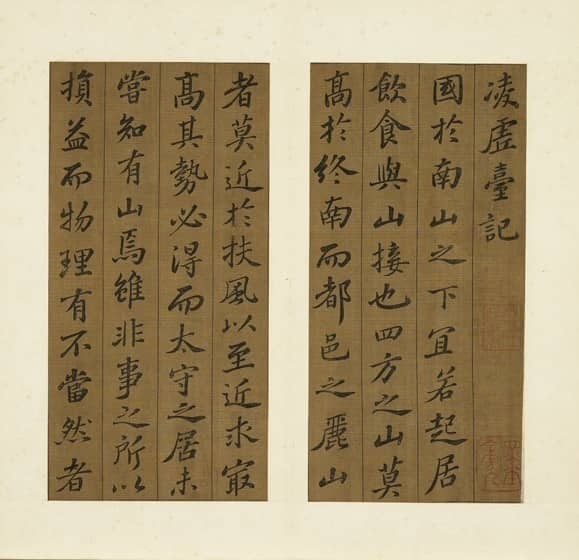 凌虛臺記
國於南山之下冝若起居
飲食與山接也四方之山莫
髙於終南而都邑之麗山
者莫近於扶風以至近求㝡
髙其勢必得而太守之居未
嘗知有山焉雖非事之所以
損益而物理有不當然者